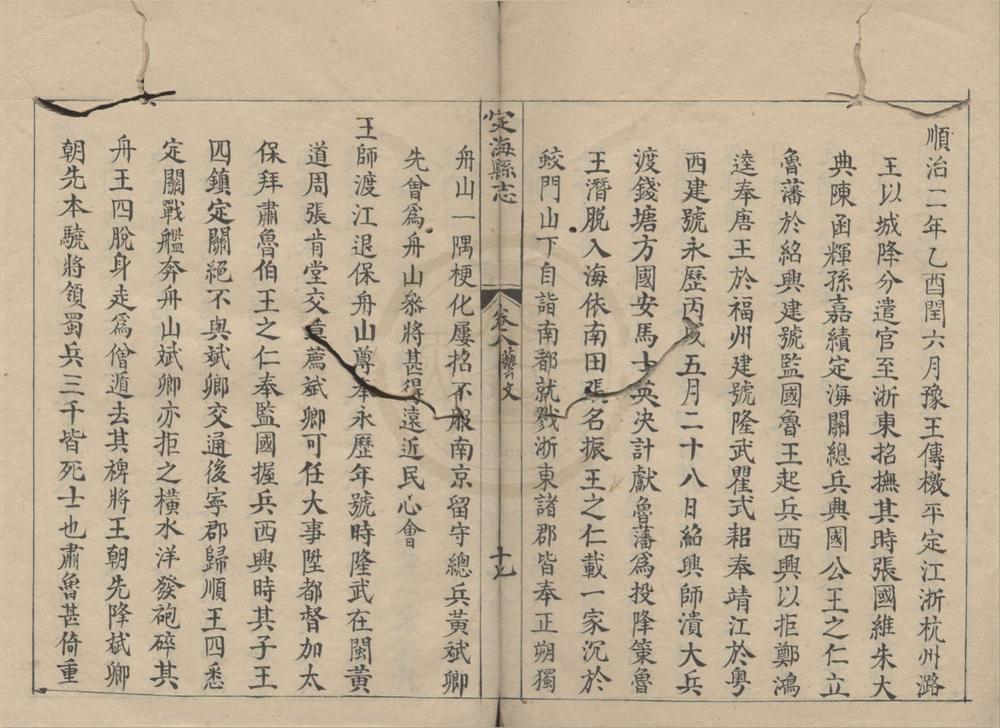 順治二年乙酉閏六月豫王傳檄平定江浙杭州潞
王以城降分遣官至浙東招撫其時張國維朱大
典陳函輝孫嘉績定海關總兵典國公王之仁立
魯藩於紹興建號監國魯王起兵西興以拒鄭鴻
逵奉唐王於福州建號隆武瞿式耜奉靖江於粵
西建號永歷丙戌五月二十八日紹興師潰大兵
渡錢塘方國安馬士英決計獻魯藩爲投降策魯
王潛脱入海依南田張名振王之仁載一家沉於
蛟門山下自詣南都就戮浙東諸郡皆奉正朔獨
定海縣志
卷八
藝文
十七
舟山一隅梗化屢招不服南京留守總兵黃斌卿
先曾爲舟山叅將甚得遠近民心會
王師渡江退保舟山尊奉永歷年號時隆武在閩黃
道周張肯堂交章薦斌卿可任大事陞都督加太
保拜肅魯伯王之仁奉監國握兵西興時其子王
四鎮定關絕不與斌卿交通後寧郡歸順王四悉
定關戰艦奔舟山斌卿亦拒之橫水洋發砲碎其
舟王四脫身走爲僧遁去其裨將王朝先降斌卿
朝先本驍將領蜀兵三千皆死士也肅魯甚倚重